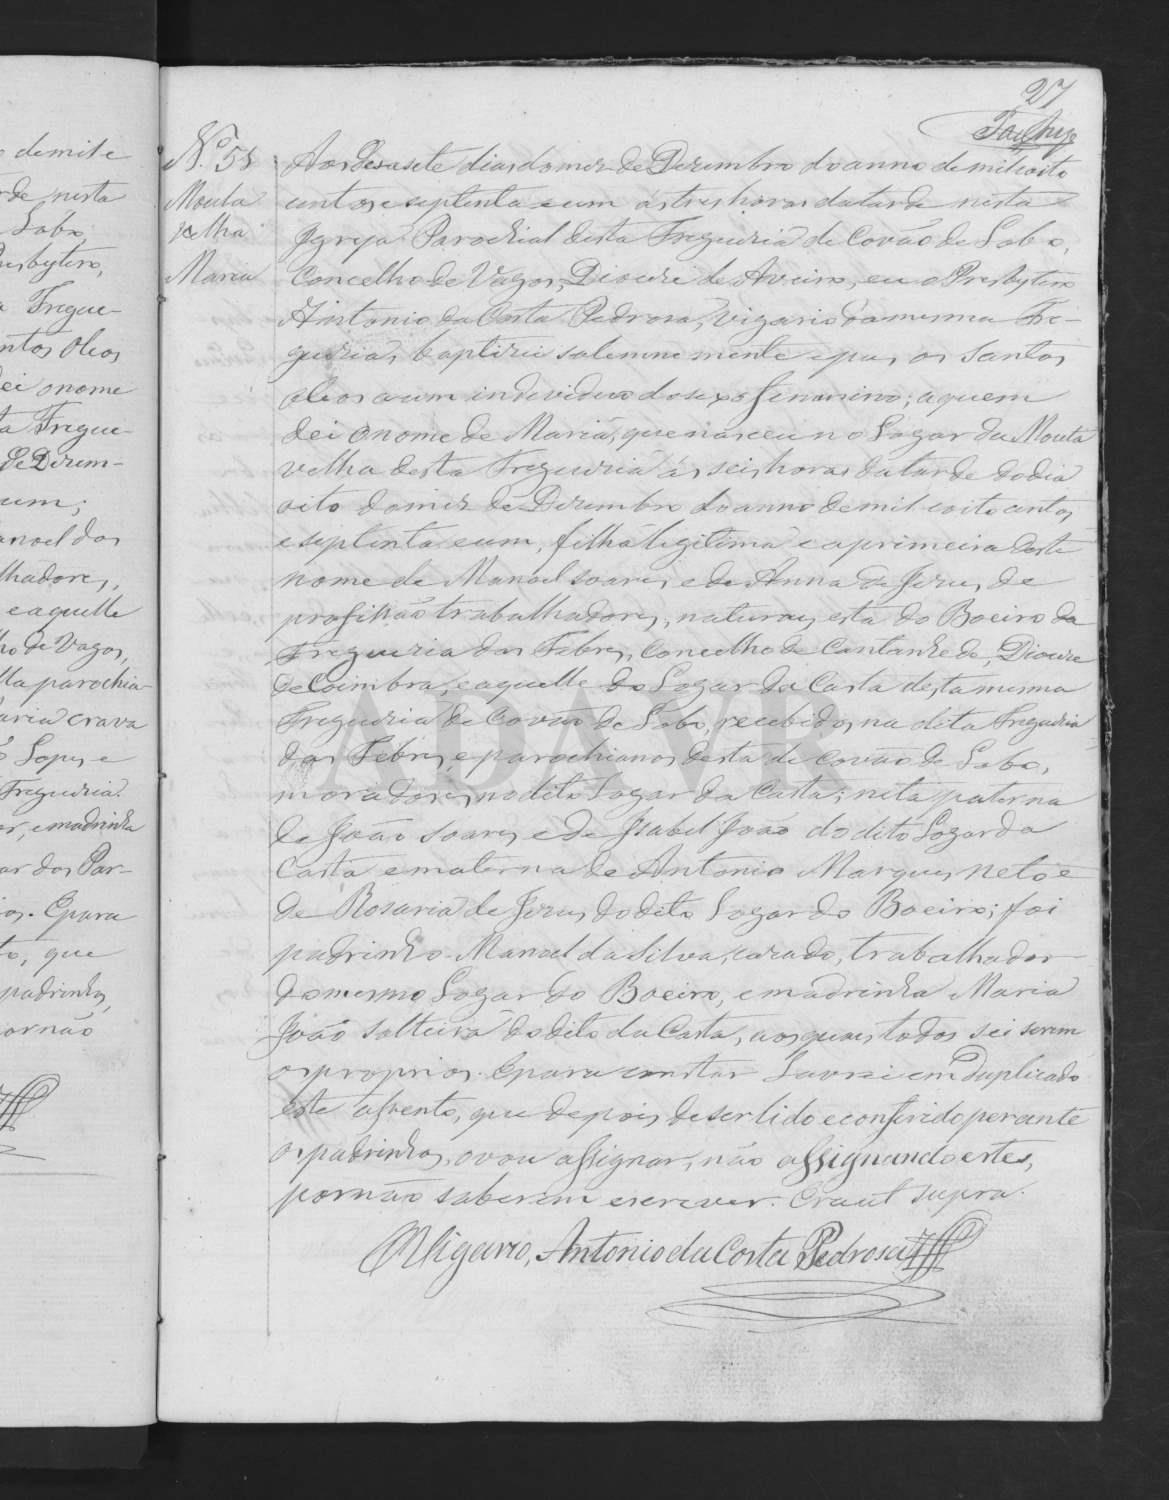 27
Nº 58
Mouta
velha
Maria
Aos desasete dias do mez de Dezembro do anno de mil oito
centos e septenta e um ás tres horas da tarde nesta
Igreja Parochial desta Freguezia de Covão de Lobo,
Concelho de Vagos, Diocese de Aveiro, eu o Presbytero
Antonio da Costa Pedrosa, Vigario da mesma Fre-
guezia, baptizei solemnemente e puz os Santos
oleos a um individuo do sexo feminino; a quem
dei o nome de Maria, que nasceu no Logar da Mouta
velha desta Freguezia ás seis horas da tarde do dia
oito do mez de Dezembro do anno de mil oito centos
e septenta e um, filha legitima e a primeira deste
nome de Manoel Soares e de Anna de Jezus, de
profissão trabalhadores, naturaes esta do Boeiro da
Freguezia das Febres, Concelho de Cantanhede, Diocese
de Coimbra, e aquelle do Logar da Carta desta mesma
Freguezia de Covão de Lobo, recebidos na dita Freguezia
das Febres, e parochianos desta de Covão de Lobo,
moradores no dito Logar da Carta; neta paterna
de João Soares e de Isabel João do dito Logar da
Carta e materna de Antonio Marques Neto e
de Rosaria de Jezus do dito Logar do Boeiro; foi
padrinho Manoel da Silva, cazado, trabalhador
do mesmo Logar do Boeiro, e madrinha Maria
João solteira do dito da Carta, aos quaes todos sei serem
os proprios. E para constar Lavrei em Duplicado
este assento, que depois de ser lido e conferido perante
os padrinhos, o vou assignar, não assignando estes,
por não saberem escrever. Era ut supra.
O Vigario, Antonio da Costa Pedrosa
ADAVR
de mil e
nesta
Lobo
Presbytero,
Fregue-
Santos Oleos
dei o nome
Fregue-
de Dezem-
um;
Manoel dos
trabalhadores,
e aquelle
de Vagos,
parochia-
Maria crava
Lopes e
Freguezia
e madrinha
dos Par-
E para
que
padrinhos,
por não